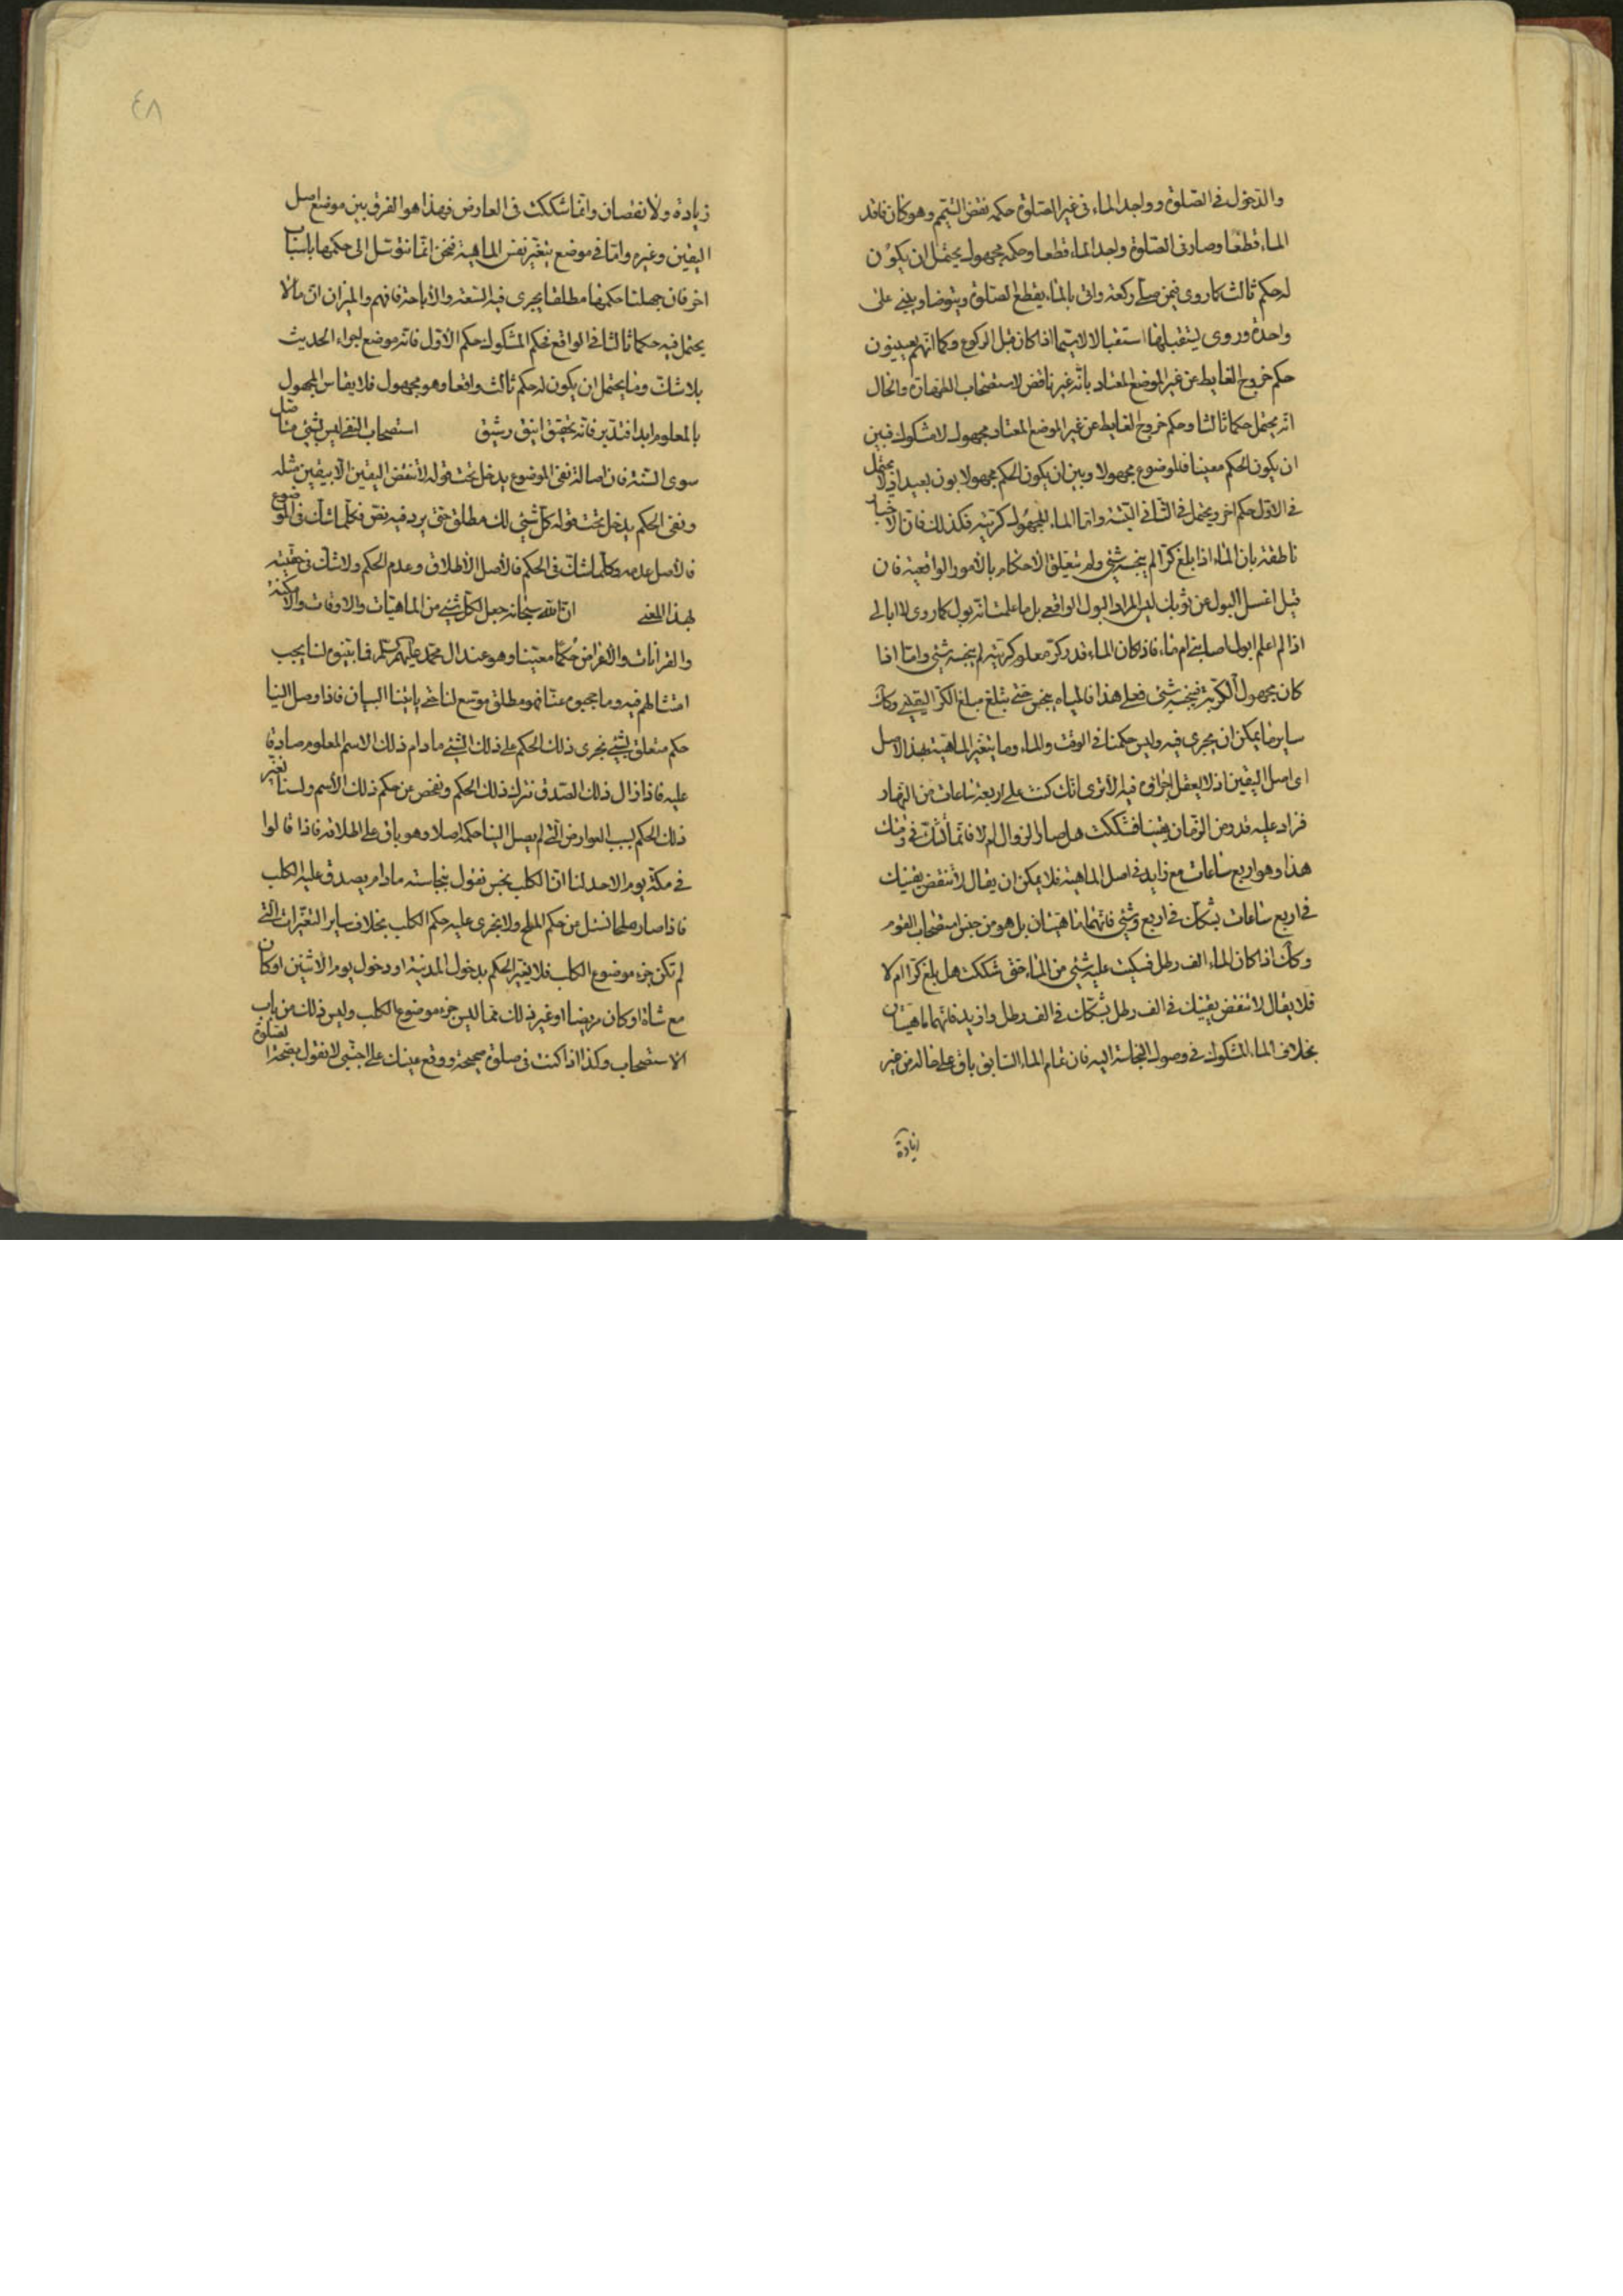 والدخول في الصلوة وواجد الماء في غير الصلوة حكمه نقض التيمم وهو كان فاقد
الماء قطعا وصار في الصلوة واجد الماء قطعا وحكمه مجهول يحتمل ان يكون
له حكم ثالث كما روى فيمن صلى ركعة واتى بالماء يقطع الصلوة ويتوضأ ويبني على
واحدة وروى يستقبلها استقبالا لاسيما اذا كان قبل الركوع وكما انهم يعينون
حكم خروج الغايط عن غير الموضع المعتاد بانه غير ناقض لاستصحاب الطهارة والحال
انه يحتمل حكما ثالثا وحكم خروج الغايط عن غير الموضع المعتاد مجهول لا مشكوك فبين
ان يكون الحكم معينا فالموضوع مجهولا وبين ان يكون الحكم مجهولا بون بعيد اذ لا يحتمل
في الاول حكم اخر ويحتمل في الثاني البتة واما الماء المجهول كريته فكذلك فان الاخبار
ناطقة بان الماء اذا بلغ كرا لم ينجسه شئ ولم يتعلق الاحكام بالأمور الواقعية فان
قيل اغسل البول عن ثوبك ليس المراد البول الواقعي بل ما علمت انه بول كما روى لا ابالي
اذا لم اعلم ابول اصابني ام ماء فاذا كان الماء قدر كر معلوم كريته لم ينجسه شئ واما اذا
كان مجهول الكرية فينجسه شئ فعلى هذا فالمياه ينجس حتى يبلغ مبلغ الكر اليقيني وكك
ساير ما يمكن ان يجرى فيه وليس حكمنا في الوقت والماء وما يتغير الماهية بهذا الاصل
اى اصل اليقين اذ لا يعقل اجراؤه فيه الا ترى انك كنت على اربعة ساعات من النهار
فزاد عليه قدر من الزمان يقينا فشككت هل صار الزوال ام لا فانما تشك في وقتك
هذا وهو اربع ساعات مع زايد في اصل الماهية فلا يمكن ان يقال لا تنقض يقينك
في اربع ساعات بشكك في اربع وشئ فانهما ماهيتان بل هو من جنس استصحاب القوم
وكك اذا كان الماء الف رطل فسكبت عليه شئ من الماء حتى شككت هل بلغ كرا ام لا
فلا يقال لا تنقض يقينك في الف رطل بشكك في الف رطل وازيد فانهما ماهيتان
بخلاف الماء المشكوك في وصول النجاسة اليه فان تمام الماء السابق باق على حاله من غير
زيادة
زيادة ولا نقصان وانما شككت في العارض فهذا هو الفرق بين موضع اصل
اليقين وغيره واما في موضع يتغير نفس الماهية فنحن انما نتوسل الى حكمها باسباب
اخر فان جهلنا حكمها مطلقا يجرى فيه السعة والاباحة فافهم والميزان ان ما لا
يحتمل فيه حكما ثالثا في الواقع فحكم المشكوك حكم الأول فانه موضع اجراء الحديث
بلا شك وما يحتمل ان يكون له حكم ثالث واقعا وهو مجهول فلا يقاس المجهول
بالمعلوم ابدا فتدبر فانه تحقيق انيق رشيق استصحاب النفي ليس بشئ مناصل
سوى السنة فان اصالة نفي الموضوع يدخل تحت قوله لا تنقض اليقين الا بيقين مثله
ونفي الحكم يدخل تحت قوله كل شئ لك مطلق حتى يرد فيه نص فكلما شك في الموضوع
فالأصل عدمه وكلما شك في الحكم فالأصل الاطلاق وعدم الحكم ولا شك في حقيته
بهذا المعنى ان الله سبحانه جعل لكل شئ من الماهيات والاوقات والامكنة
والقرانات والأعراض حكما معينا وهو عند ال محمد عليهم السلم فما بينوه لنا يجب
امتثالهم فيه وما حجبوه عنا فهو مطلق موسع لنا حتى ياتينا البيان فاذا وصل الينا
حكم متعلق بشئ نجرى ذلك الحكم على ذلك الشئ ما دام ذلك الاسم المعلوم صادقا
عليه فاذا زال ذلك الصدق نترك ذلك الحكم ونفحص عن حكم ذلك الأسم ولسنا نغير
ذلك الحكم بسبب العوارض التي لم يصل الينا حكمه اصلا وهو باق على اطلاقه فاذا قالوا
في مكة يوم الاحد لنا ان الكلب نجس نقول بنجاسته ما دام يصدق عليه الكلب
فاذا صار ملحا نسئل من حكم الملح ولا نجرى عليه حكم الكلب بخلاف ساير التغيرات التي
لم تكن جزء موضوع الكلب فلا يغير الحكم بدخول المدينة او دخول يوم الاثنين او كان
مع شاة او كان مريضا او غير ذلك مما ليس جزء موضوع الكلب وليس ذلك من باب
الاستصحاب وكذا اذا كنت في صلوة صحيحة ووقع عينك على اجنبي لا نقول بصحة الصلوة
٤٨